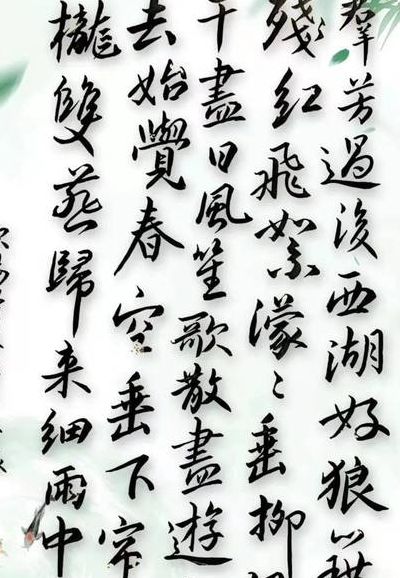 羣芳過後西湖好狼
殘紅飛絮濛〻垂柳
干盡日風笙歌散盡遊
去始覺春空垂下帘
櫳雙燕歸来細雨中